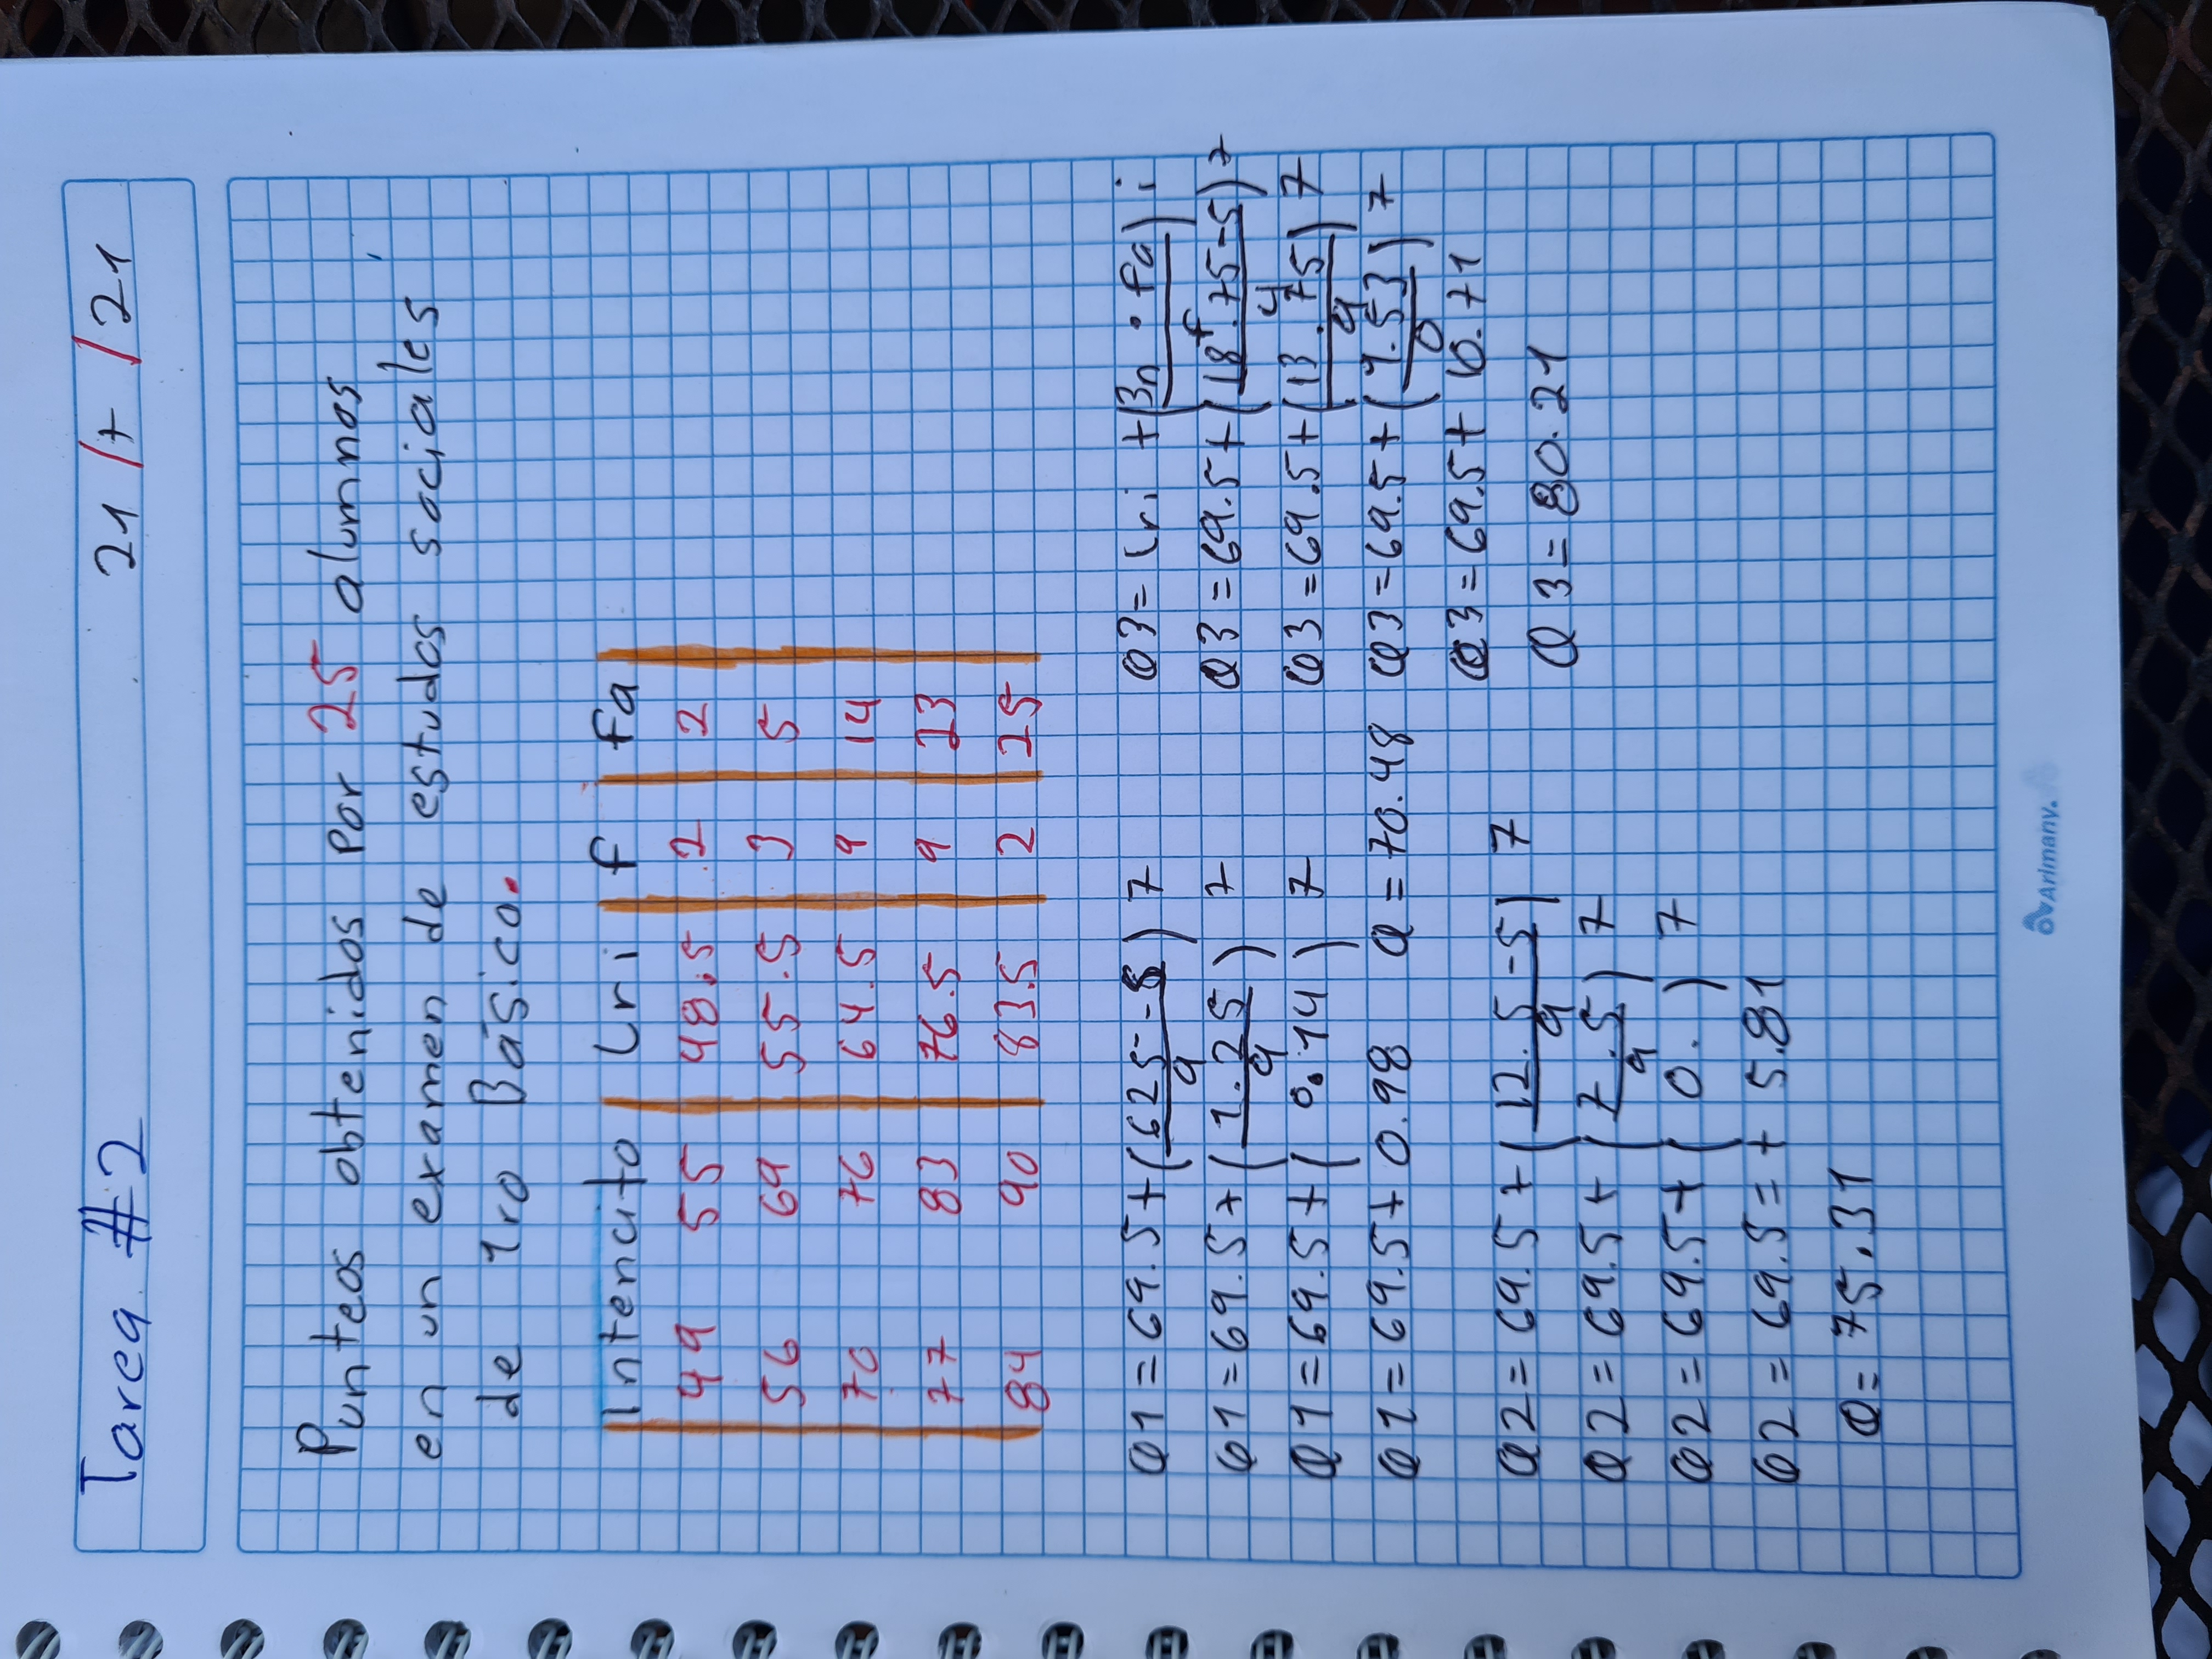 Tarea #2 21/7/21
Punteos obtenidos por 25 alumnos
en un examen de estudos sociales
de 1ro Básico.
Intencuto Lri f fa
49 55 48.5 2 2
56 69 55.5 3 5
70 76 64.5 9 14
77 83 76.5 9 23
84 90 83.5 2 25
Q1=69.5+(625-5) 7
9
Q1=69.5+(1.25) 7
9
Q1=69.5+(0.14) 7
Q1=69.5+0.98 Q=70.48
Q2=69.5+(12.5-5) 7
9
Q2=69.5+(7.5) 7
9
Q2=69.5+(0.) 7
Q2=69.5=+5.81
Q=75.31
Q3=Lri+(3n•fa) i
f
Q3=69.5+(18.75-5) 7
9
Q3=69.5+(13.75) 7
9
Q3=69.5+(1.53) 7
0
Q3=69.5+10.71
Q3=80.21
Arimany.